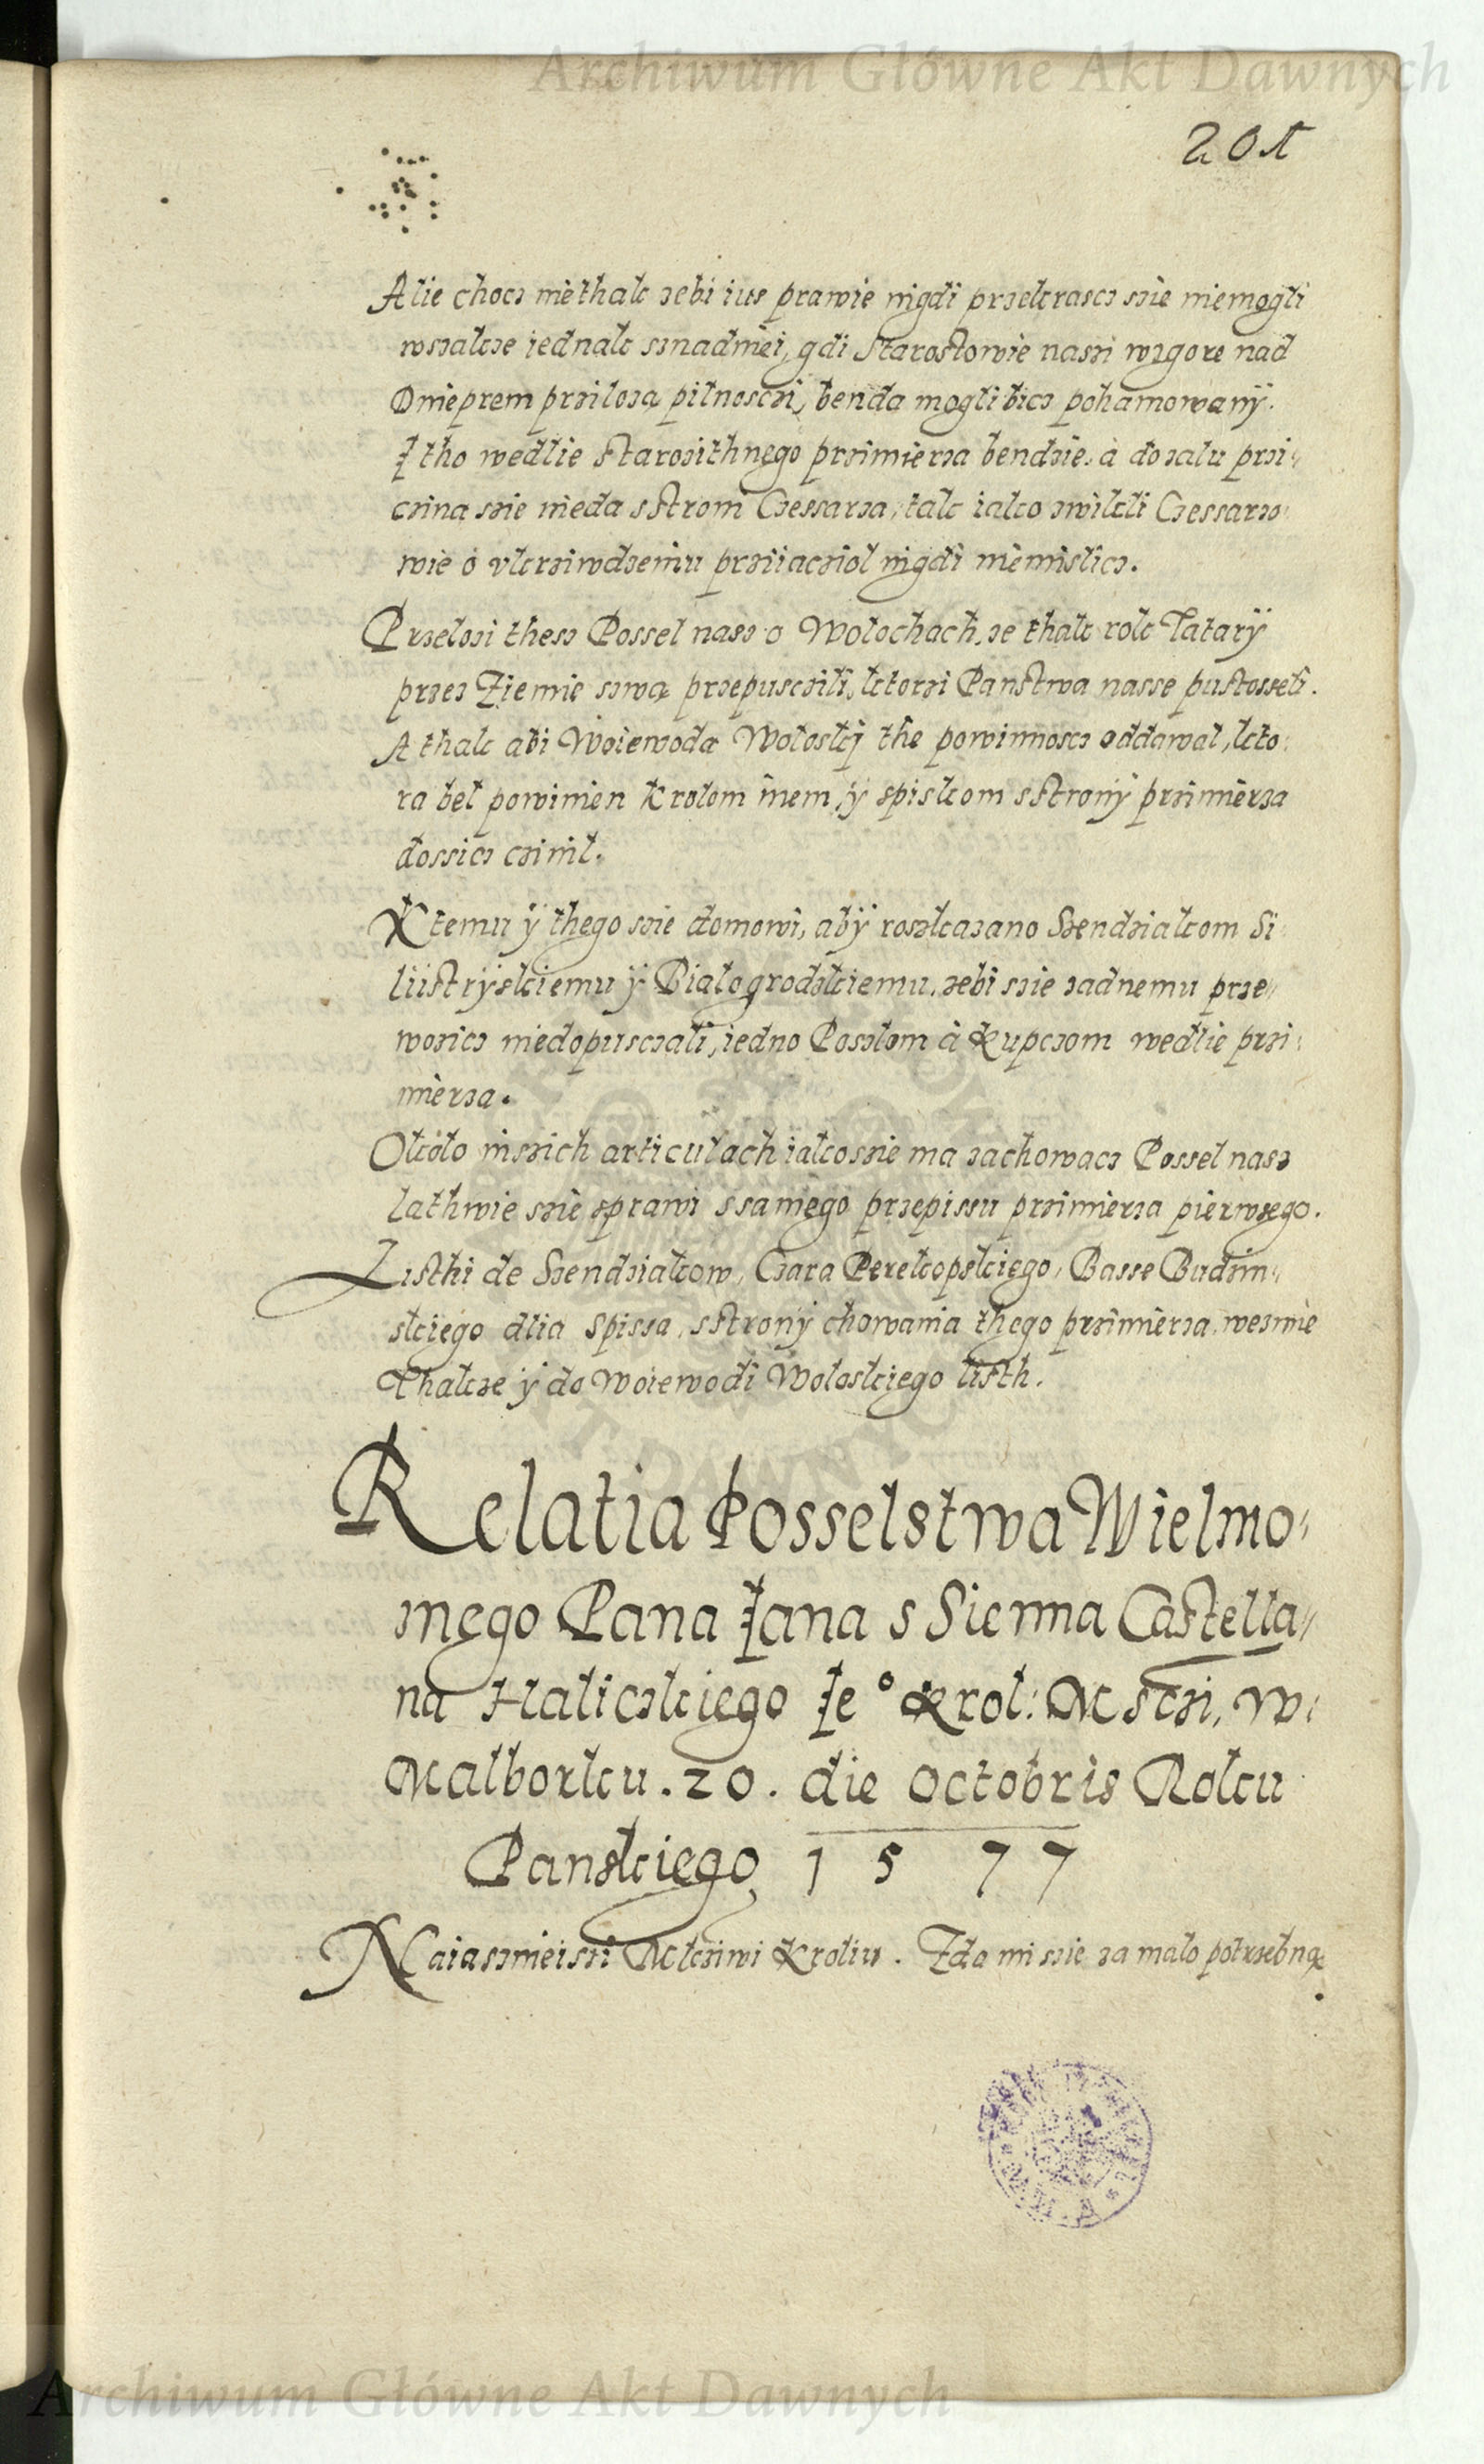 Archiwum Główne Akt Dawnych
201
Alie chocz niethak zebi ius prawie nigdi przekrascz szie niemogli
wszakze iednak sznadniei, gdi Starostowie naszi wzgore nad
Dnieprem przilozą pilnosczi, benda mogli bicz pohamowanÿ.
I tho wedlie starozithnego przimierza bendzie. à dozalu przi„
czina szie nieda sstroni Czessarza, tak iako zwikli Czessarzo:
wie o vkrziwdzeniu prziiacziol nigdi niemislicz.
Przelozi thesz Possel nasz o Wolochach, ze thak rok Tatarÿ
przez Ziemie szwą przepusczili, ktorzi Panstwa nasse pustosseli.
A thak abi Woiewoda Woloskj the powinnoscz oddawal, kto:
ra bel powinien Krolom inem, ÿ spiskom sstronÿ przimierza
dossicz czinil.
K temu ÿ thego szie domowi, abÿ roszkazano Szendziakom Si
liistrÿskiemu ÿ Bialogrodzkiemu, zebi szie zadnemu prze„
wozicz niedopusczali, iedno Poszlom à Kupczom wedlie przi:
mierza.
Okolo inszich articulach iakoszie ma zachowacz Possel nasz
lathwie szie sprawi ssamego przepissu przimierza pierwszego.
Listhi de Szendziakow, Czara Perekopskiego, Basse Budzin„
skiego dlia spissa, sstronÿ chowania thego przimierza, wezmie
Thakze ÿ do Woiewodi Woloskiego listh.
Relatia Posselstwa Wielmo„
znego Pana Iana s Sienna Castella„
na Haliczkiego Ie° Krol: Msczi, w:
Malborku . 20 . die Octobris Roku
Panskiego 1577
Naiasznieiszi Mkcziwi Kroliu . Zda mi szie za malo potrzebną
Archiwum Główne Akt Dawnych